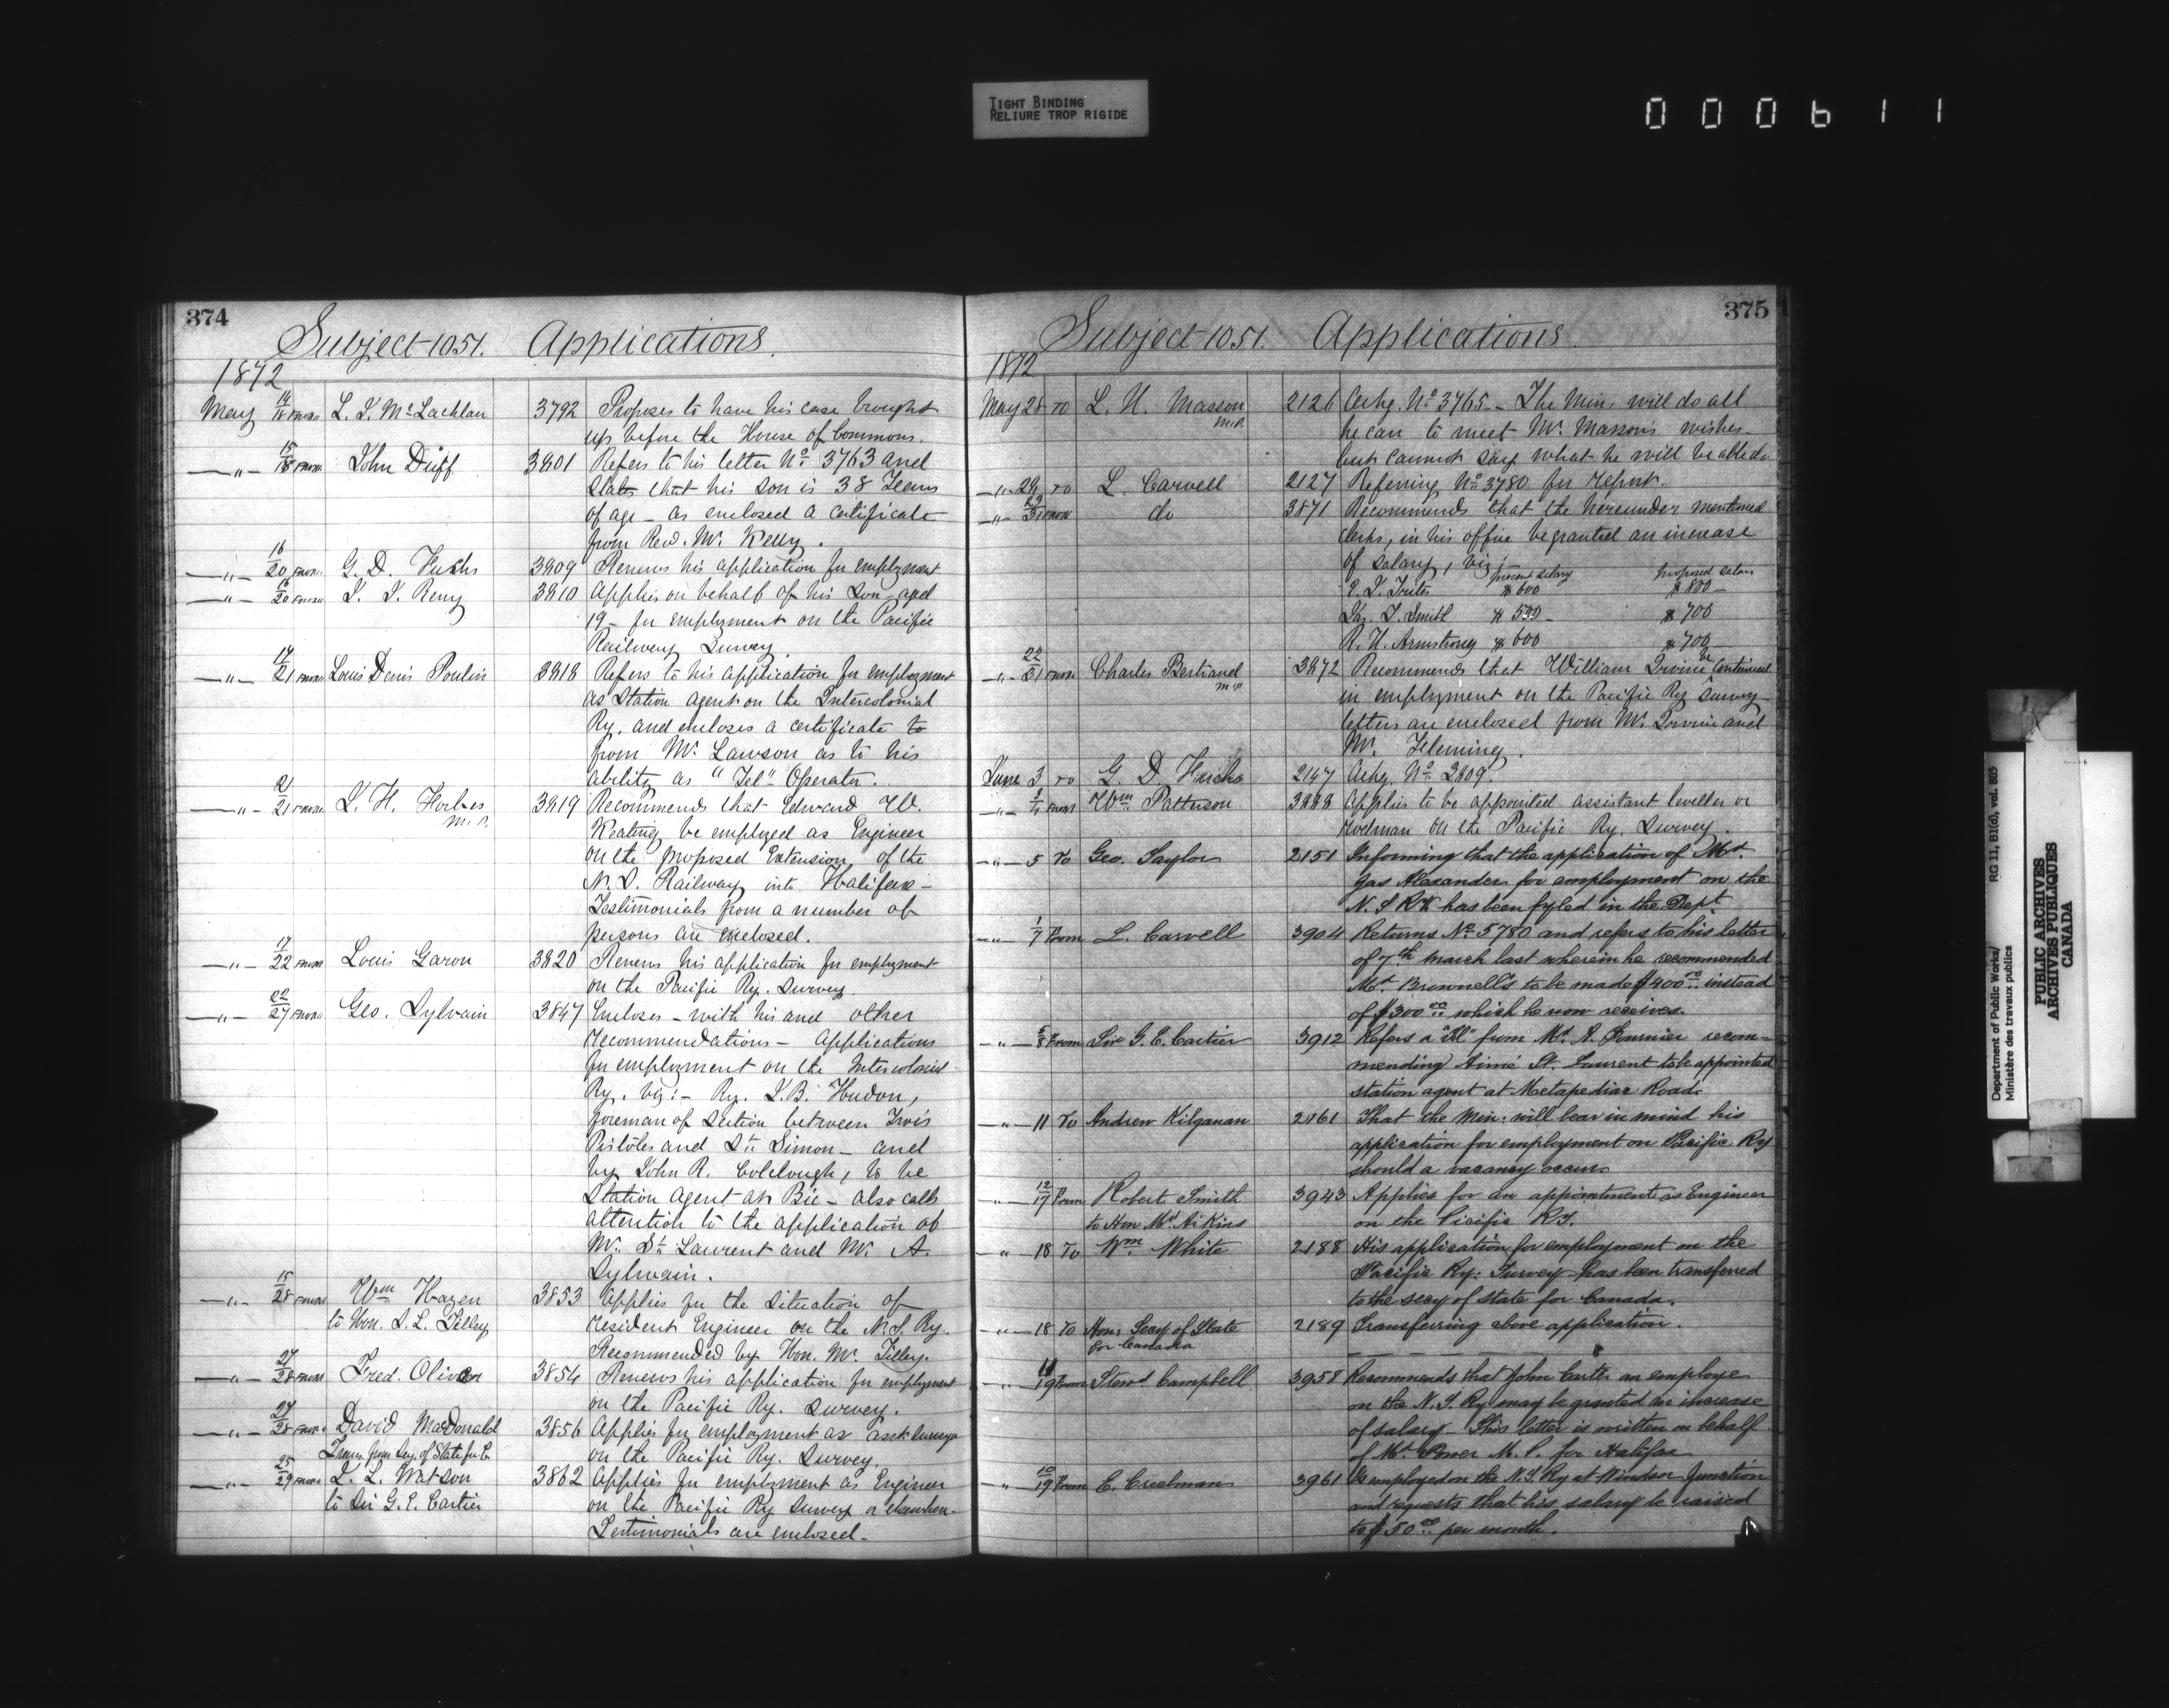 TIGHT BINDING
RELIURE TROP RIGIDE
000611
374
Subject 1051. Applications.
1872
May 14/18 from L. J. McLachlan 3792 Proposes to have his case brought
up before the House of Commons.
—"— 15/18 from John Duff 3801 Refers to his letter No. 3763 and
states that his son is 38 Years
of age — as enclosed a certificate
from Revd. Mr. Kelly.
—"— 16/20 from G. D. Fuchs 3809 Renews his application for employment
—"— 16/20 from 3810 Applies on behalf of his Son aged
19 — for employment on the Pacific
Railway Survey.
—"— 17/21 from Louis Denis Poulin 3818 Refers to his application for employment
as Station Agent on the Intercolonial
Ry. and encloses a certificate to
from Mr. Lawson as to his
ability as "Tel" Operator.
—"— 21/21 from J. H. Forbes 3819 Recommends that Edward W.
M.P.
Keating be employed as Engineer
on the proposed Extension of the
N.S. Railway into Halifax —
Testimonials from a number of
persons are enclosed.
—"— 17/22 from Louis Garon 3820 Renews his application for employment
on the Pacific Ry. Survey.
—"— 22/27 from Geo. Sylvain 3847 Encloses — with his and other
recommendations — Applications
for employment on the Intercolonial
Ry. viz:— By. J. B. Hudon,
foreman of Section between Trois
Pistoles and St. Simon — and
by John R. Colclough, to be
Station Agent at Bic — also calls
attention to the application of
Mr. St. Laurent and Mr. A.
Sylvain.
—"— 15/28 from Wm Hazen 3853 Applies for the situation of
to Hon. S. L. Tilley resident Engineer on the N.S. Ry.
Recommended by Hon. Mr. Tilley.
—"— 27/28 from Fred. Oliver 3854 Renews his application for employment
on the Pacific Ry. Survey.
—"— 27/28 from David MacDonald 3856 Applies for employment as asst
Trans. from Secy. of State for C. on the Pacific Ry. Survey.
—"— 25/29 from J. L. Watson 3862 Applies for employment as Engineer
to Sir G. E. Cartier on the Pacific Ry Survey or elsewhere.
Testimonials are enclosed —
375
Subject 1051. Applications.
1872
May 28 to L. H. Masson 2126 Ackg. No 3765 — The Min. will do all
M.P.
he can to meet Mr. Masson's wishes —
but cannot say what he will be able do
—"— 29 to L. Carvell 2127 Referring No 3780 for report.
—"— 29/31 from do 3871 Recommends that the hereunder mentioned
clerks, in his office be granted an increase
of salary, viz:—
present salary proposed salary
E. L. $600 $800 —
Jas. J. Smith $530 — $700
R. H. Armstrong $600 $700
—"— 22/31 from Charles Bertrand 3872 Recommends that William Irvine be continued
M.P.
in employment on the Pacific Ry Survey
letters are enclosed from Mr. Irvine and
Mr. Fleming.
June 3 to G. D. Fuchs 2147 Ackg No. 3809.
—"— 3/4 from Wm. Patterson 3888 Applies to be appointed assistant leveller or
rodman on the Pacific Ry. Survey.
—"— 5 To Geo. Taylor 2151 Informing that the application of Mr.
Jas Alexander for employment on the
N. S RR has been fyled in the Dept.
—"— 1/7 From L. Carvell 3904 Returns No 3780 and refers to his letter
of 7th March last wherein he recommended
Mr. Brownell's to be made $400.00 instead
of $300.00 which he now receives.
—"— 5/8 From Sir G. E. Cartier 3912 Refers a from Mr. A. Fournier recom-
mending Aimé St. Laurent to be appointed
station agent at Metapediac Road.
—"— 11 To Andrew Kilganan 2161 That the Min: will bear in mind his
application for employment on Pacific Ry
should a vacancy occur
" — 12/17 From Robert Smith 3943 Applies for an appointment as Engineer
to Hon Mr. Aikins on the Pacific RY.
" — 18 To Wm. White 2188 His application for employment on the
Pacific Ry: Survey has been transferred
to the secy of state for Canada.
" — 18 To Hon: Secy of State 2189 Transferring above application.
for Canada
" — 11/19 From Stewd Campbell 3958 Recommends that John Carter an employe
on the N. S. Ry may be granted an increase
of salary — This letter is written on behalf
of Mr Power M.P. for Halifax
" 10/19 From E. Creelman 3961 Is employed on the N. S. Ry at Windsor Junction
and requests that his salary be raised
to $50.00 per month.
Department of Public Works/ RG 11, B1(d), vol. 805
Ministère des travaux publics
PUBLIC ARCHIVES
ARCHIVES PUBLIQUES
CANADA